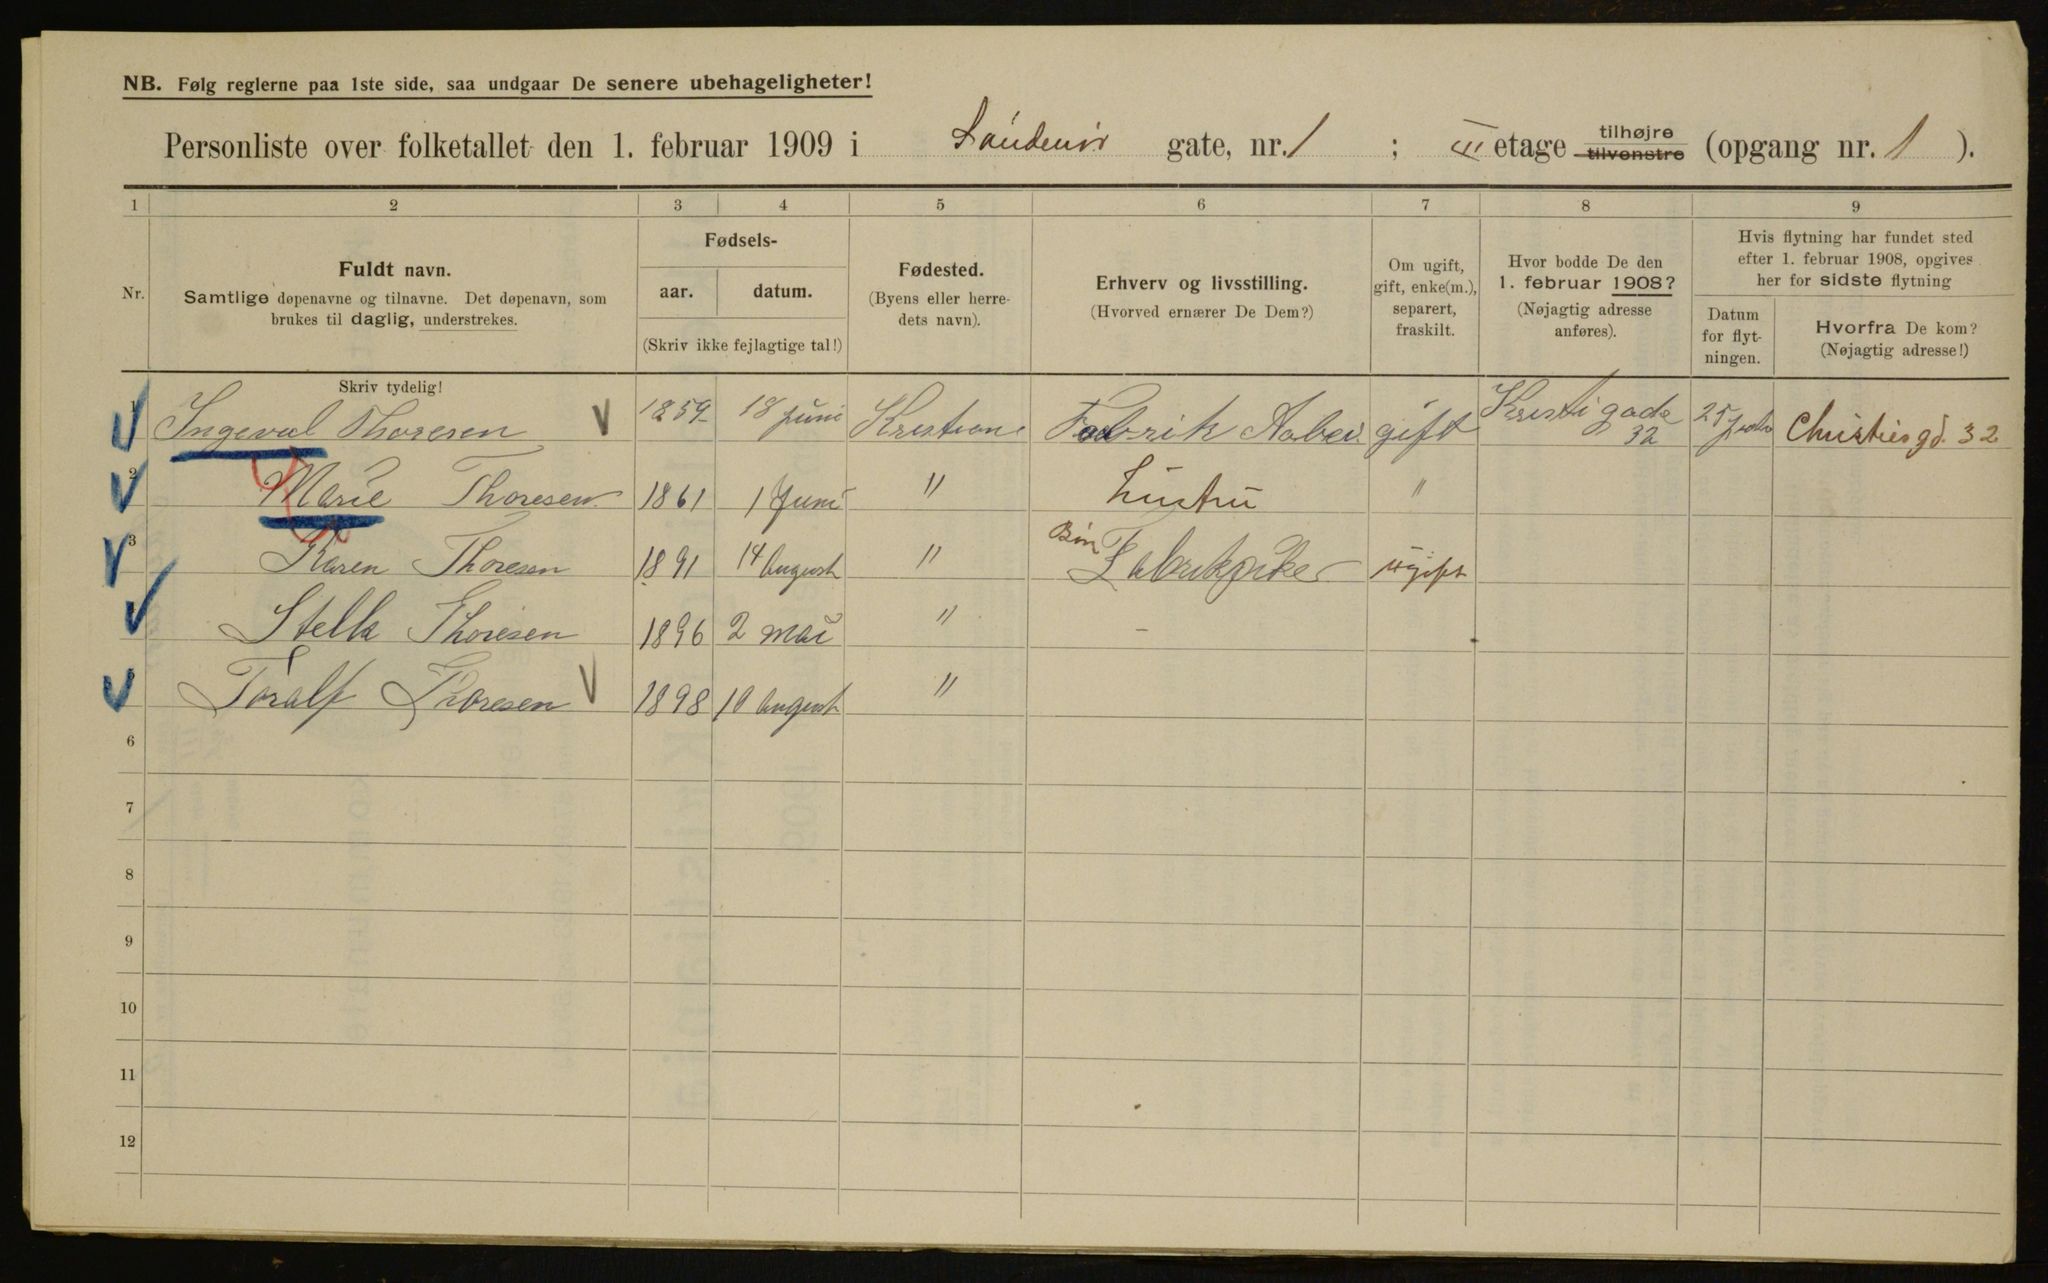 NB. Følg reglerne paa 1ste side, saa undgaar De senere ubehageligheter!
Personliste over folketallet den 1. februar 1909 i gate, nr. 1 ; III etage tilhøjre tilvenstre (opgang nr. 1 ).
1 2 3 4 5 6 7 8 9
Nr.
Fuldt navn.
Samtlige døpenavne og tilnavne. Det døpenavn, som
brukes til daglig, understrekes.
Fødsels-
aar. datum.
(Skriv ikke fejlagtige tal!)
Fødested.
(Byens eller herre-
dets navn).
Erhverv og livsstilling.
(Hvorved ernærer De Dem?)
Om ugift,
gift, enke(m.),
separert,
fraskilt.
Hvor bodde De den
1. februar 1908?
(Nøjagtig adresse
anføres).
Hvis flytning har fundet sted
efter 1. februar 1908, opgives
her for sidste flytning
Datum
for flyt-
ningen.
Hvorfra De kom?
(Nøjagtig adresse!)
Skriv tydelig!
1 Ingeval Thoresen 1859 18 Juni Kristian Fabrik Aabei gift Kristi gade 32 25 Christies gd. 32
2 Marie Thoresen 1861 1 Juni " Hustru "
3 Karen Thoresen 1891 14 August " Fabrikpike ugift
Stella Thoresen 1896 2 mai " –
Toralf Thoresen 1898 10 August "
6
7
8
9
10
11
12